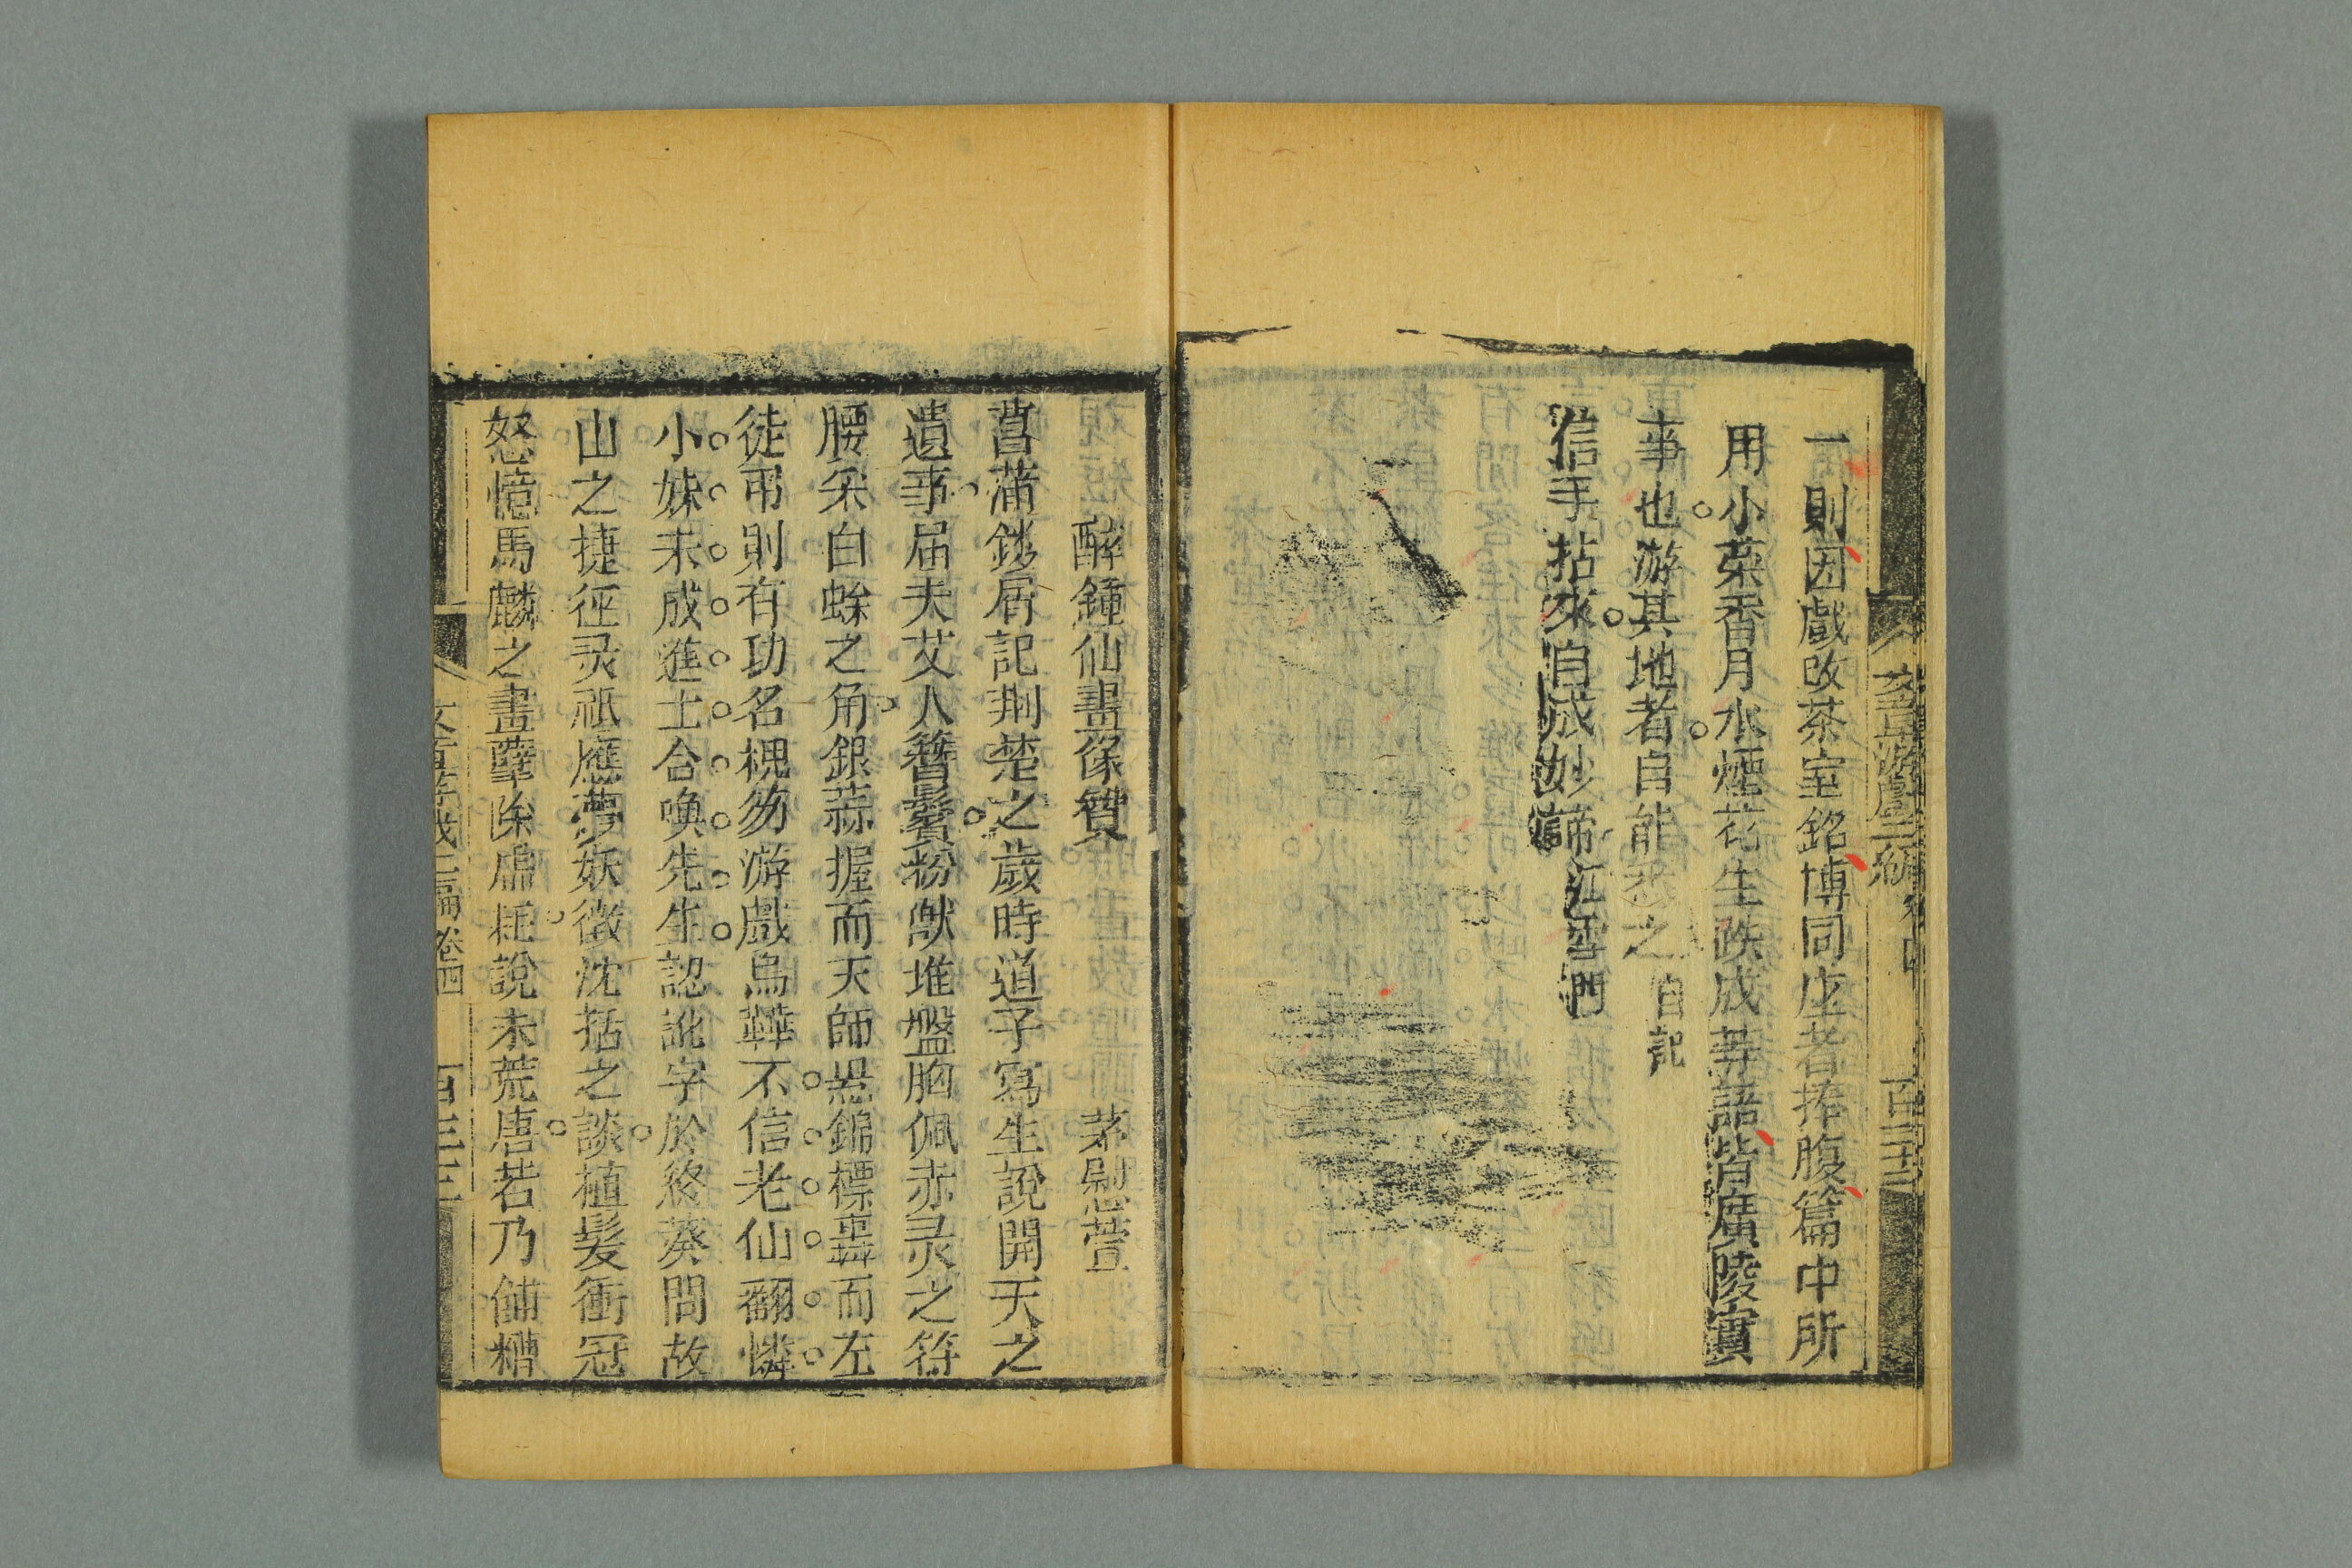 文章游戲二編 卷四 百三十三
一則因戲改茶室銘博同座者捧腹篇中所
用小菜香月水煙花生跌成等語皆廣陵實
事也游其地者自能悉之 自記
信手拈來自成妙諦 江雪門
醉鍾仙畫像贊 茅慰萱
菖蒲錢屑記荆楚之歲時道子寫生說開天之
遺事届夫艾人簪鬢粉獸堆盤胸佩赤灵之符
腰采白蛛之角銀蒜握而天師 錦標 而左
徒弔則有功名槐笏游戲烏鞾不信老仙翻憐
小妹未成進士合喚先生認訛字於終葵問故
山之捷徑灵祇應夢妖徴沈括之談植髪衝冠
怒憶馬麟之畫孽除虛耗說未荒唐若乃餔糟
文章游戲二編 卷四 百三三